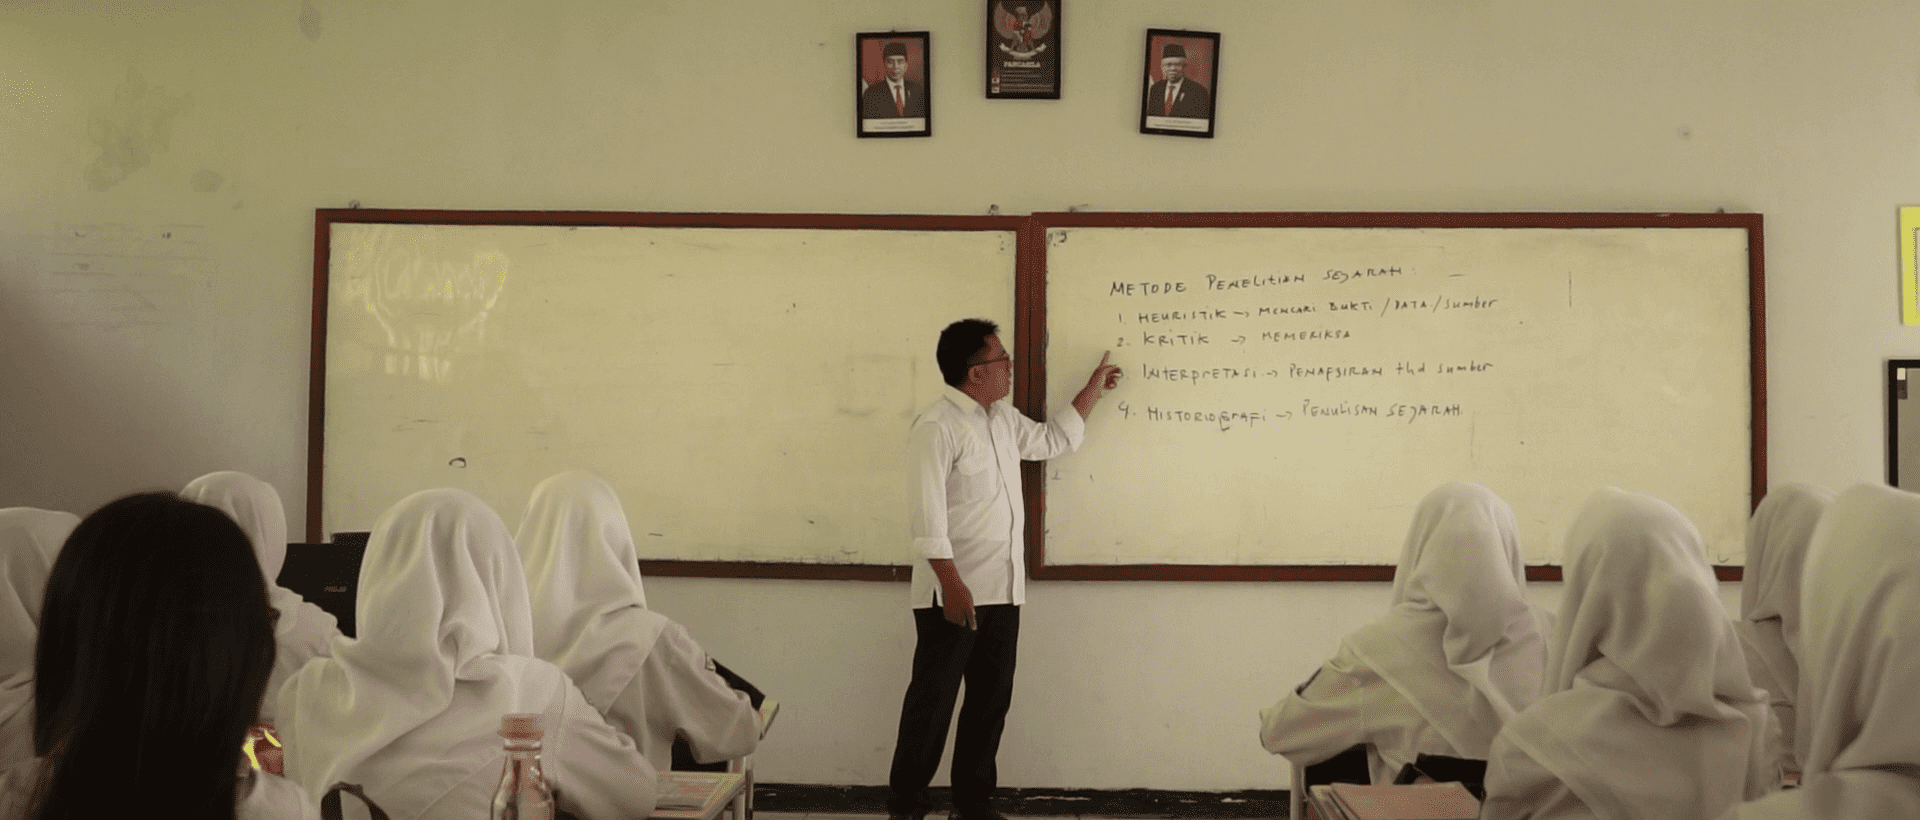 PANCASILA
METODE PENELITIAN SEJARAH
1. HEURISTIK -> MENCARI BUKTI / DATA / Sumber
2. KRITIK -> MEMERIKSA
3. INTERPRETASI -> PENAFSIRAN thd sumber
4. HISTORIOGRAFI -> PENULISAN SEJARAH